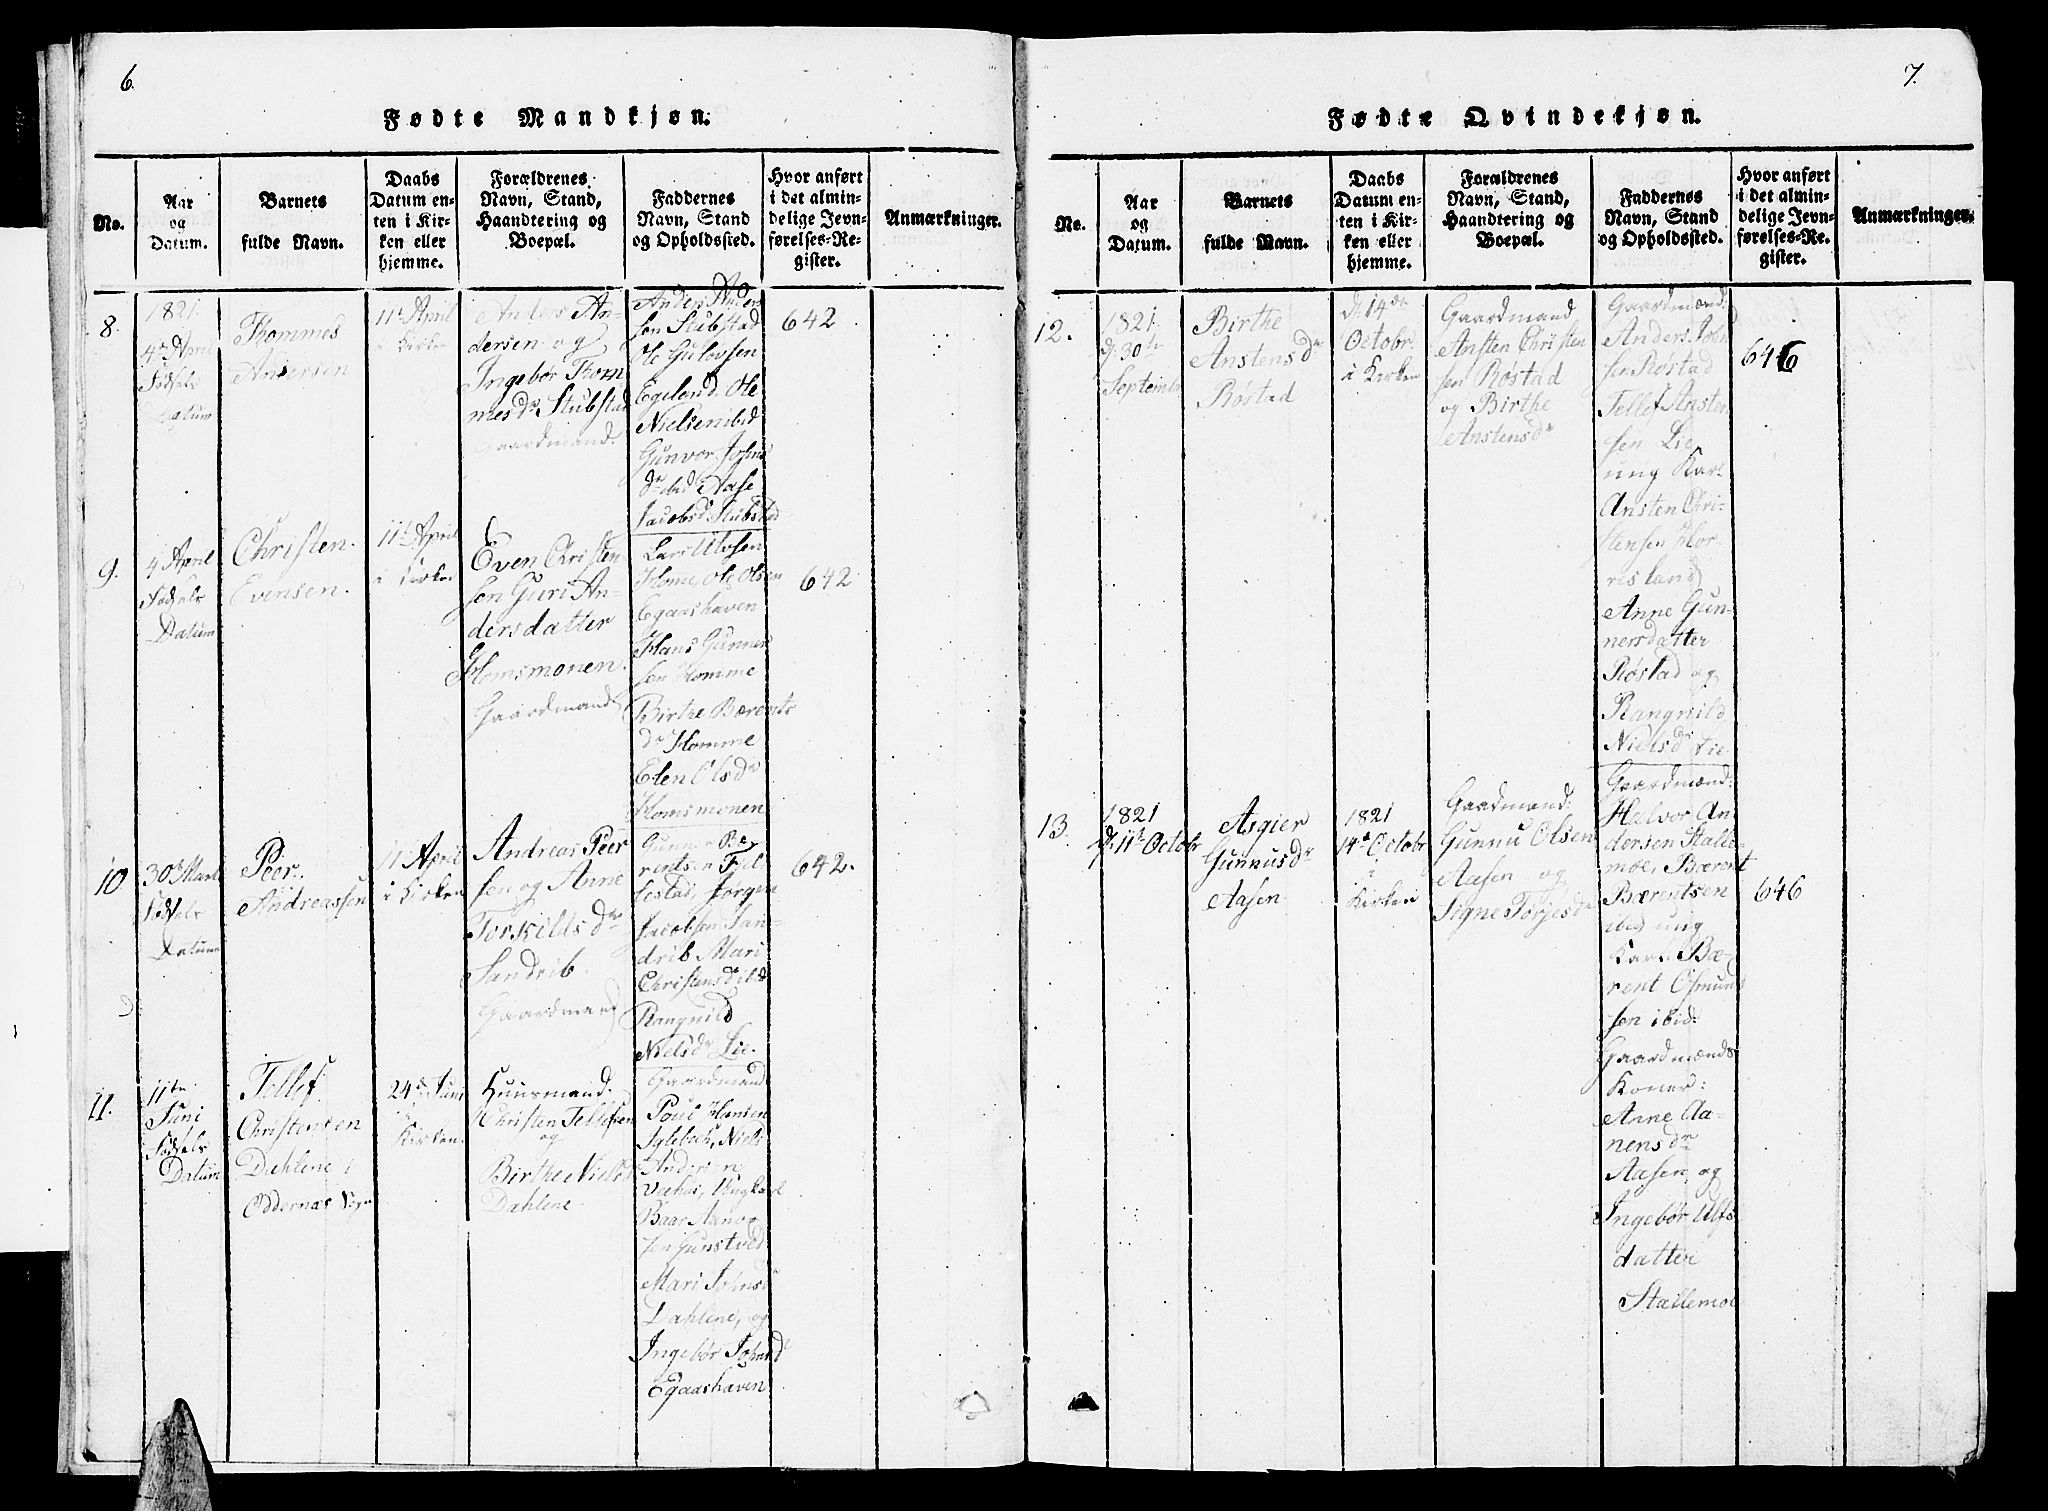 6.
Fødte Mandkjøn.
No.
Aar
og
Datum.
Barnets
fulde Navn.
Daabs
Datum en-
ten i Kir-
ken eller
hjemme.
Forældrenes
Navn, Stand,
Haandtering og
Boepæl.
Faddernes
Navn, Stand
og Opholdssted.
Hvor anført
i det almin-
delige Jevn-
førelses-Re-
gister.
Anmærkninger.
8.
1821.
4de April
Fødsels
Datum
Thommes
Andersen
11te April
i Kirken
Anders An-
dersen og
Ingebør Thom
mesdr Stubstad
Gaardmand.
Anders Anders
sen Stubstad
Ole Gulovsen
Egeland. Ole
Nielsen ibid
Gunvor Johns
dr ibid Aase
Jacobsd Stubstad
642
9.
4 April
Fødsels
Datum
Christen.
Evensen.
11te April
i Kirken
Even Christen
sen Guri An-
dersdatter
Homsmonen.
Gaardmand
Lars Ulvsen
Homme, Ole Olsen
Egaashaven
Hans Gunner
sen Homme
Birthe Bærents
dr Homme
Elen Olsdr
Homsmonen
642
10
30te Marti
Fødsels
Datum
Peer.
Andreassen
11te April
i Kirken
Andreas Peer
sen og Anne
Torkildsdr
Sandrib.
Gaardmand
Gunner Bæ
rentsen Fid
lestad, Jørgen
Jacobsen San-
drib Mari
Christensd ibid
Rangnild
Nielsdr Lie.
642.
11.
11te
Juni
Fødsels
Datum
Tellef.
Christensen
Dahlene i
Oddernæs Sogn
24de Juni
i
Kirken.
Huusmand.
Christen Tellefsen
og
Birthe Nielsd
Dahlene.
Gaardmænd
Poul Hansen
Iglebæch, Niels
Andersen
Væhus, Ungkarl
Baar Aanon
sen Gunstved
Mari Johnsdr
Dahlene, og
Ingebør Johnsd
Egaashaven
7.
Fødte Qvindekjøn.
No.
Aar
og
Datum.
Barnets
fulde Navn.
Daabs
Datum en-
ten i Kir-
ken eller
hjemme.
Forældrenes
Navn, Stand,
Haandtering og
Boepæl.
Faddernes
Navn, Stand
og Opholdssted.
Hvor anført
i det almin-
delige Jevn-
førelses-Re-
gister.
Anmærkninger.
12.
1821
d. 30te
Septembr
Birthe
Anstensdr
Røstad
d. 14de
Octobr.
i Kirken
Gaardmand
Ansten Christen
sen Røstad
og Birthe
Anstensdr
Gaardmænd
Anders John
sen Røstad
Tellef Ansten
sen Lie
ung Karl
Ansten Chri-
stensen Hor-
risland
Anne Gun-
nersdatter
Røstad og
Rangnild
Nielsdr Lie
646
13.
1821
d. 11te Octobr
Asgier
Gunnusdr
Aasen
1821
14de Octobr
i
Kirken
Gaardmand:
Gunnu Olsen
Aasen og
Signe Torjesdr
Gaardmænd:
Halvor An
dersen Stalle-
moe, Bærent
Bærentsen
ibid ung
Karl Bæ-
rent Osmund
sen ibid:
Gaardmænds
Koner:
Anne Aa-
nensdr
Aasen og
Ingebør Ulfs
datter
Stallemoe
646